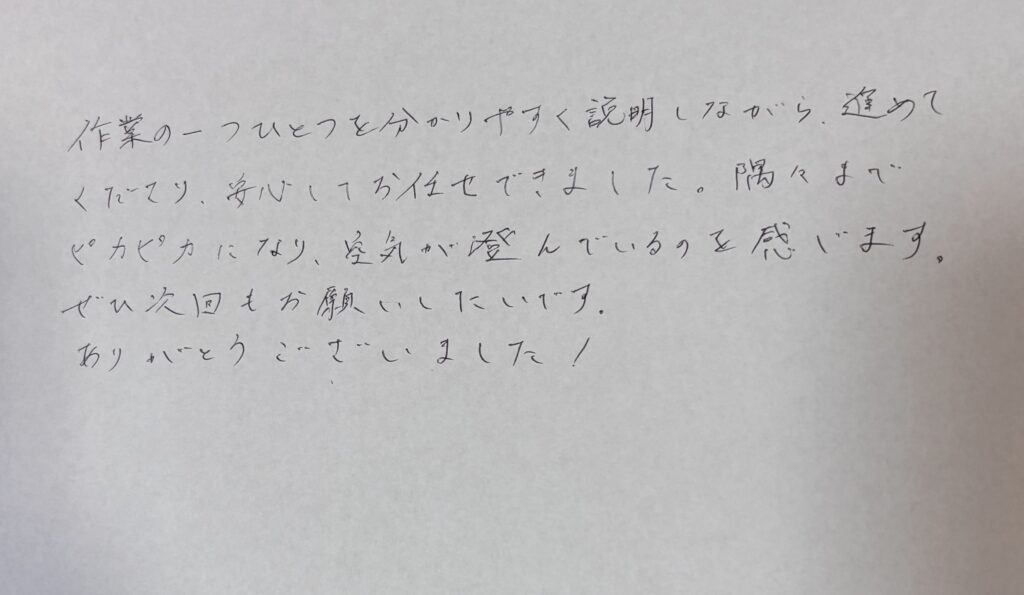 作業の一つひとつを分かりやすく説明しながら、進めて
くださり、安心してお任せできました。隅々まで
ピカピカになり、空気が澄んでいるのを感じます。
ぜひ次回もお願いしたいです。
ありがとうございました!